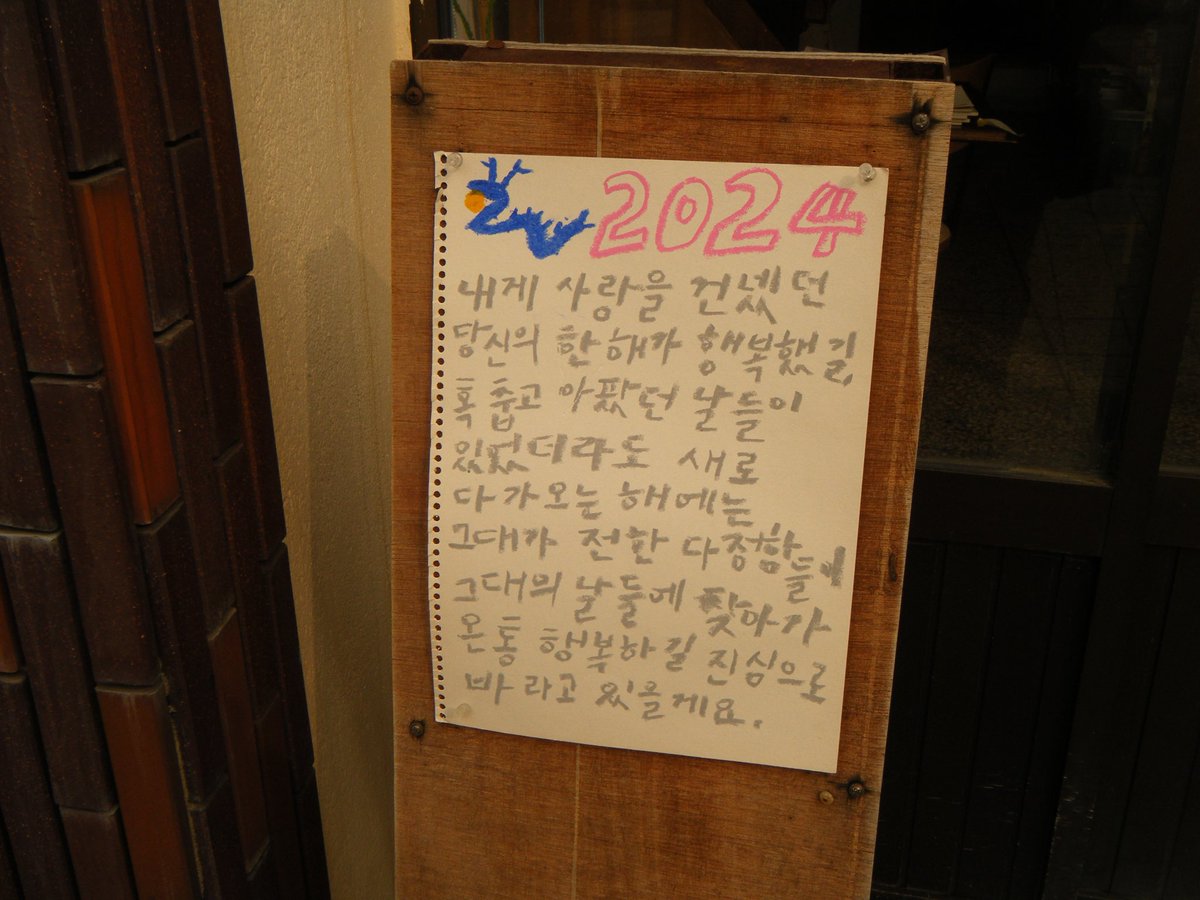 2024
내게 사랑을 건넸던
당신의 한 해가 행복했길,
혹 춥고 아팠던 날들이
있었더라도 새로
다가오는 해에는
그대가 전한 다정함들이
그대의 날들에 찾아가
온통 행복하길 진심으로
바라고 있을게요.